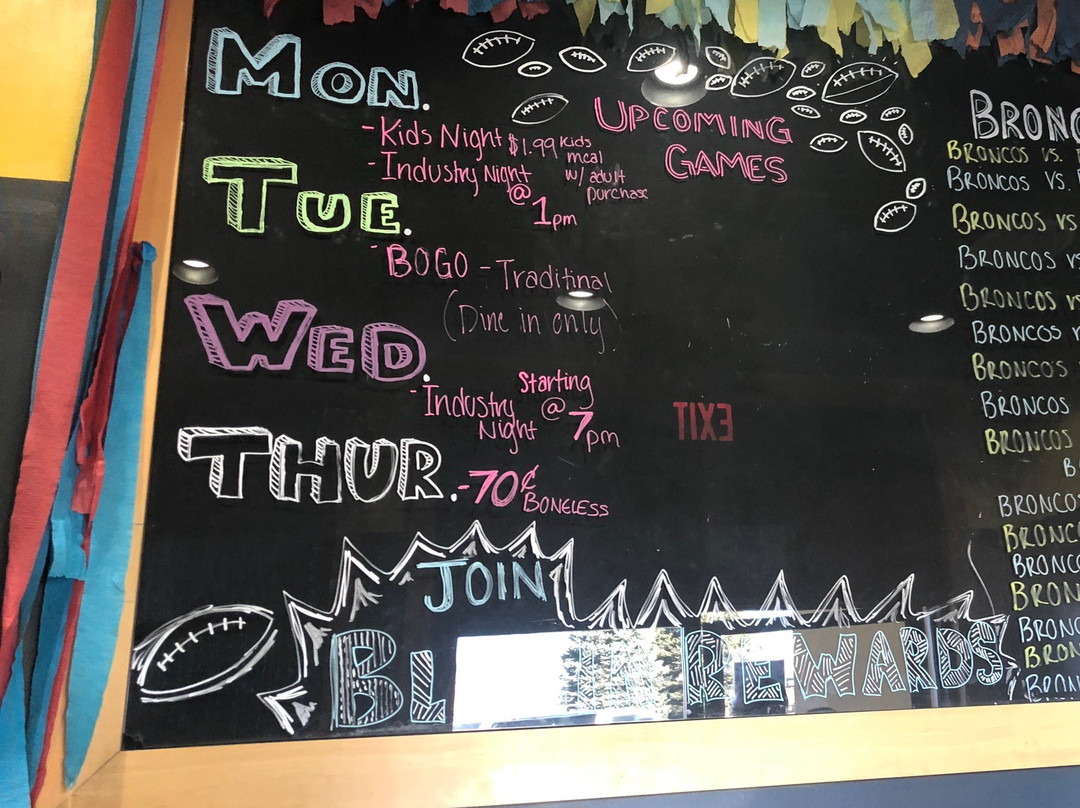 MON.
- Kids Night $1.99 Kids
meal
w/ adult
purchase
- Industry Night
@
1pm
TUE.
- BOGO - Traditinal
(Dine in only)
WED.
- Industry
Night
Starting
@ 7pm
THUR.
- 70¢
BONELESS
JOIN
BL IN REWARDS
UPCOMING
GAMES
EXIT
BRONC
BRONCOS VS.
BRONCOS VS.
BRONCOS VS
BRONCOS VS
BRONCOS
BRONCOS
BRONCOS
BRONCOS
BRONCOS
B
BRONCOS
BRONC
BRONC
BRON
BRONC
BRON
BRON